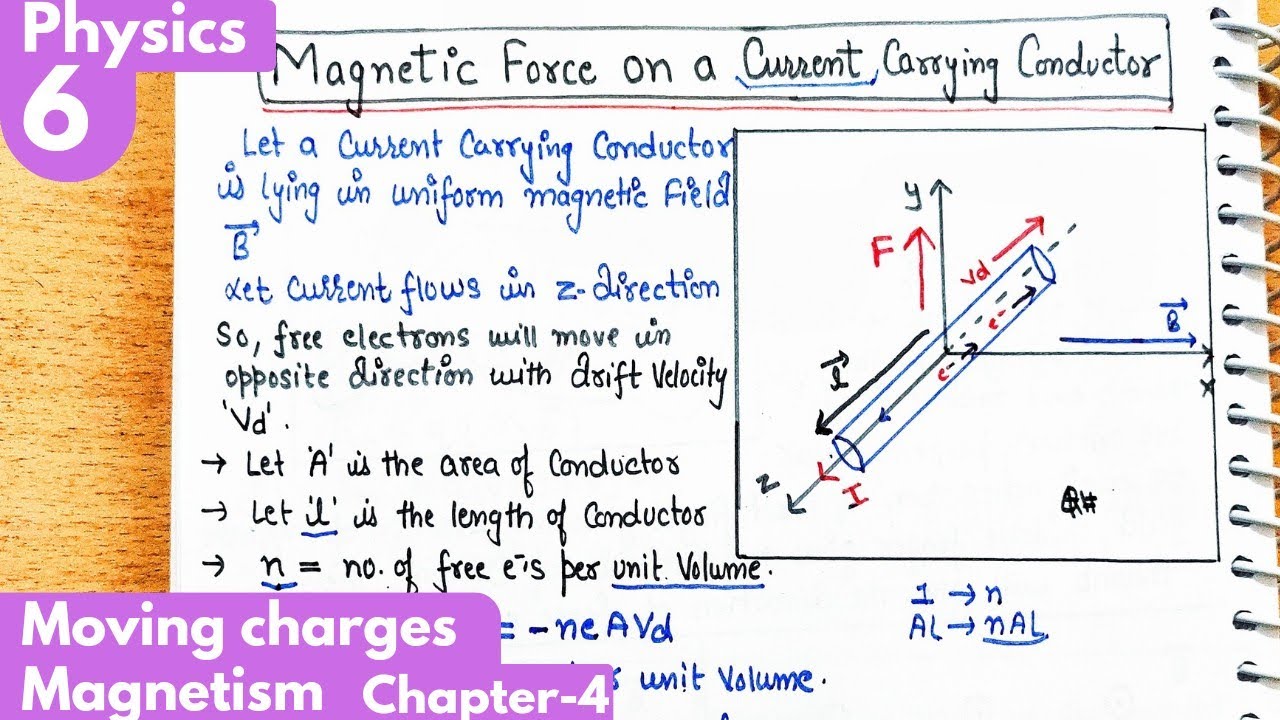 Physics
6
Magnetic Force on a Current Carrying Conductor
Let a Current Carrying Conductor
is lying in uniform magnetic Field
B
Let Current flows in z-direction
So, free electrons will move in
opposite direction with drift Velocity
'Vd'.
→ Let 'A' is the area of Conductor
→ Let 'l' is the length of Conductor
→ n = no. of free e-s per unit Volume.
= -neAVd
unit Volume.
y
F
Vd
e-
e-
B
x
I
z
1 → n
AL → nAL
Moving charges
Magnetism Chapter-4